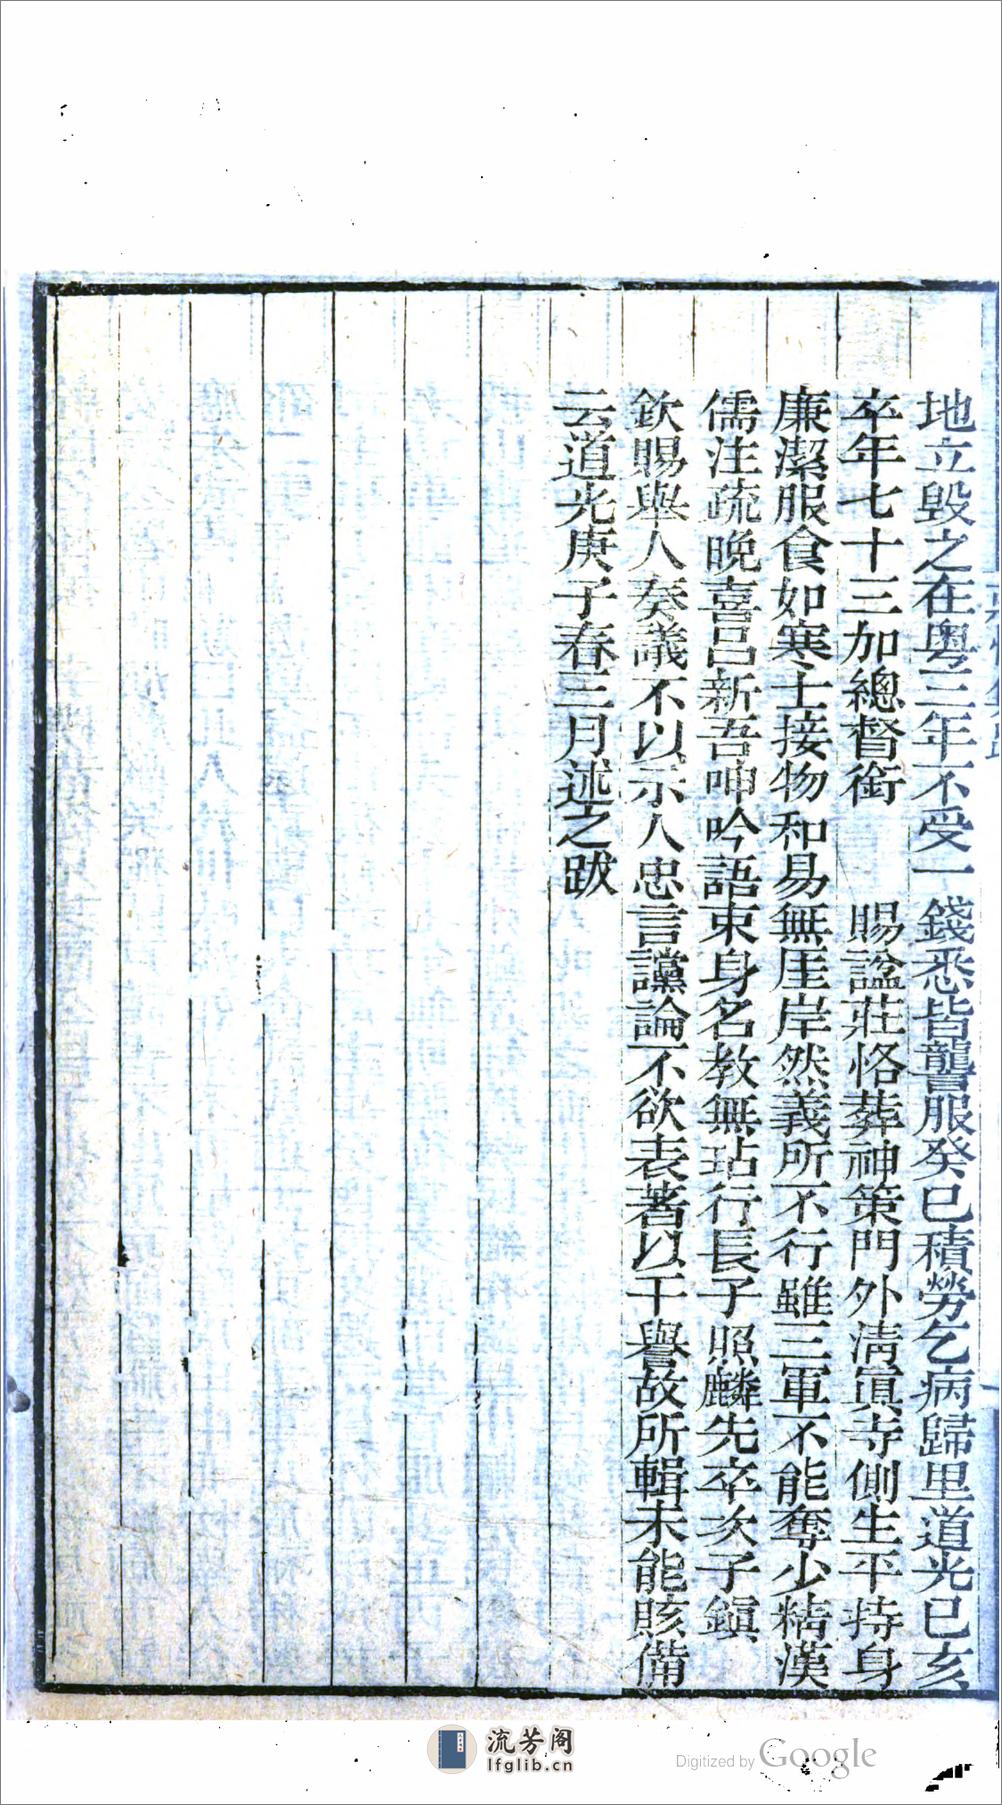 地立毀之在粵三年不受一錢悉皆讋服癸巳積勞乞病歸里道光己亥
卒年七十三加總督銜　賜諡莊恪葬神策門外清真寺側生平持身
廉潔服食如寒士接物和易無厓岸然義所不行雖三軍不能奪少精漢
儒注疏晚喜呂新吾呻吟語束身名教無玷行長子照麟先卒次子鎮
欽賜舉人奏議不以示人忠言讜論不欲表著以干譽故所輯未能賅備
云道光庚子春三月述之跋
流芳阁
lfglib.cn
Digitized by Google